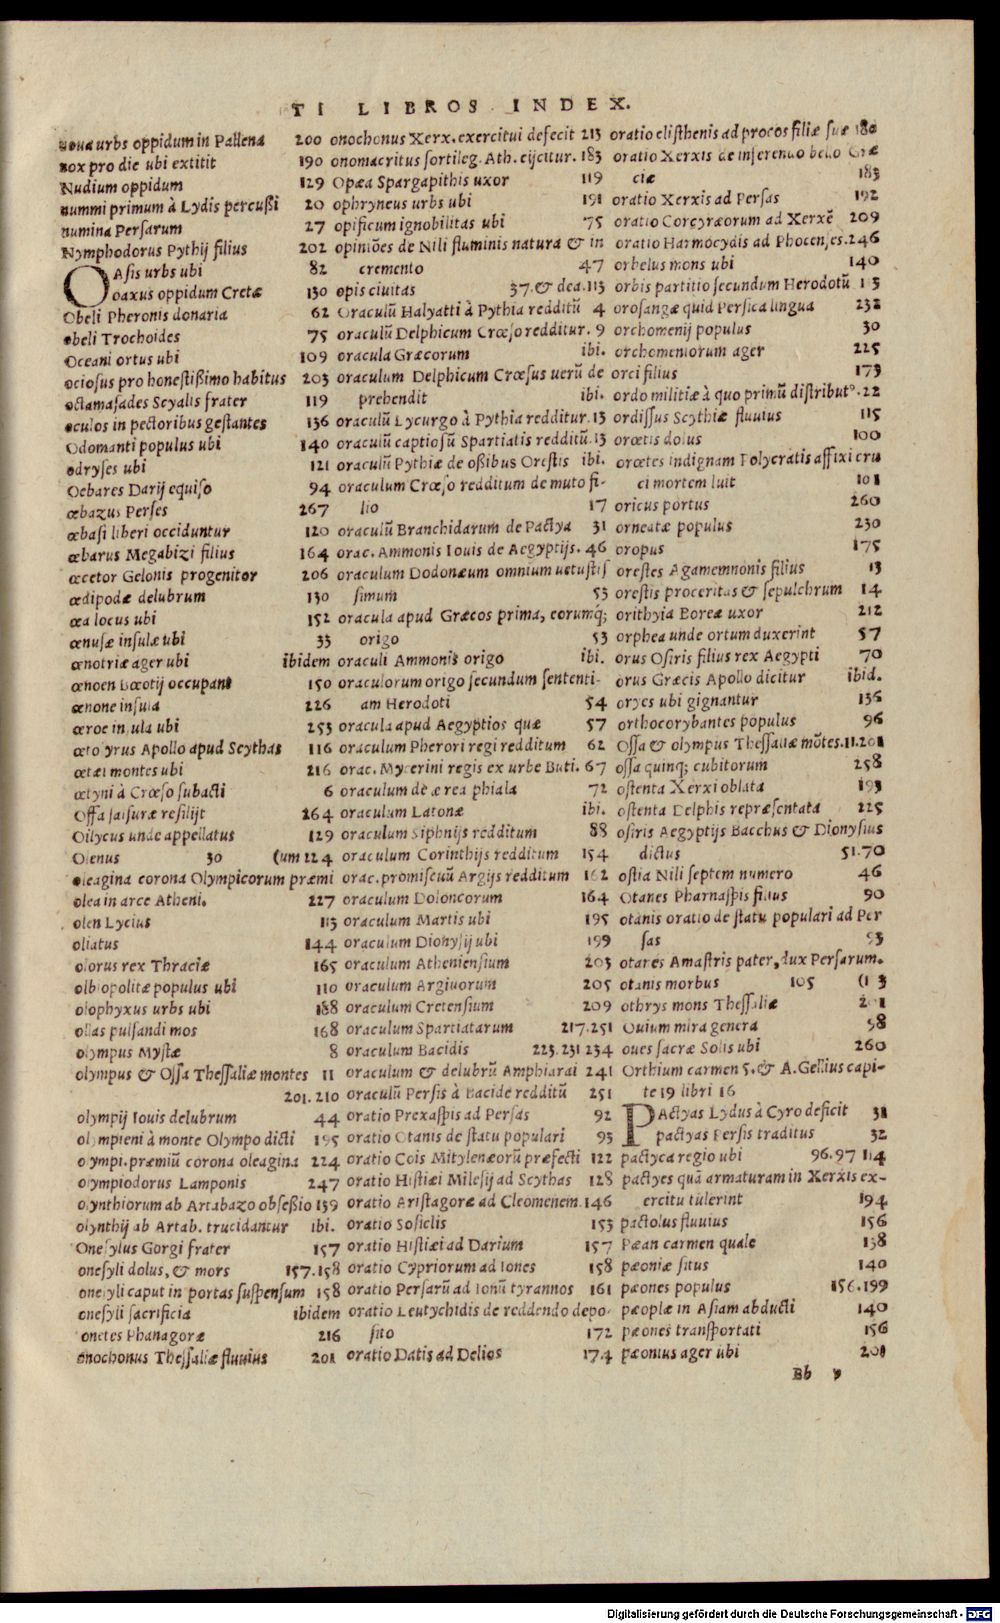 TI LIBROS INDEX.
noua urbs oppidum in Pallena 200
nox pro die ubi extitit 190
Nudium oppidum 129
nummi primum à Lydis percußi 20
numina Persarum 27
Nymphodorus Pythij filius 202
OAsis urbs ubi 82
oaxus oppidum Cretæ 130
Obeli Pheronis donaria 62
obeli Trochoides 75
Oceani ortus ubi 109
ociosus pro honestißimo habitus 203
octamasades Scyalis frater 119
oculos in pectoribus gestantes 136
Odomanti populus ubi 140
odryses ubi 121
Oebares Darij equiso 94
œbazus Perses 267
œbasi liberi occiduntur 120
œbarus Megabizi filius 164
œcetor Gelonis progenitor 206
œdipodæ delubrum 130
œa locus ubi 152
œnusæ insulæ ubi 33
œnotriæ ager ubi ibidem
œnoen Bœotij occupant 150
œnone insula 226
œroe insula ubi 253
œtosyrus Apollo apud Scythas 116
œtæi montes ubi 216
œtyni à Crœso subacti 6
Offa salsuræ resilijt 264
Oilycus unde appellatus 129
Olenus 30 (um 224
oleagina corona Olympicorum præmi
olea in arce Atheni. 227
olen Lycius 113
oliatus 144
olorus rex Thraciæ 165
olbiopolitæ populus ubi 110
olophyxus urbs ubi 188
ollas pulsandi mos 168
olympus Mysiæ 8
olympus & Ossa Thessaliæ montes 11
201. 210
olympij Iouis delubrum 44
olympieni à monte Olympo dicti 195
olympi. præmiũ corona oleagina 224
olympiodorus Lamponis 247
olynthiorum ab Artabazo obseßio 139
olynthij ab Artab. trucidantur ibi.
Onesylus Gorgi frater 157
onesyli dolus, & mors 157.158
onesyli caput in portas suspensum 158
onesyli sacrificia ibidem
onetes Phanagoræ 216
onochonus Thessaliæ fluuius 201
onochonus Xerx. exercitui defecit 213
onomacritus sortileg. Ath. eijcitur. 183
Opœa Spargapithis uxor 119
ophryneus urbs ubi 191
opificum ignobilitas ubi 75
opiniões de Nili fluminis natura & in
cremento 47
opis ciuitas 37. & dea. 113
Oraculũ Halyatti à Pythia redditũ 4
oraculũ Delphicum Crœso redditur. 9
oracula Græcorum ibi.
oraculum Delphicum Crœsus uerũ de
prehendit ibi.
oraculũ Lycurgo à Pythia redditur. 13
oraculũ captiosũ Spartiatis redditũ. 13
oraculũ Pythiæ de oßibus Orestis ibi.
oraculum Crœso redditum de muto fi-
lio 17
oraculũ Branchidarum de Pactya 31
orac. Ammonis Iouis de Aegyptijs. 46
oraculum Dodonæum omnium uetustis
simum 53
oracula apud Græcos prima, eorumq;
origo 53
oraculi Ammonis origo ibi.
oraculorum origo secundum sententi-
am Herodoti 54
oracula apud Aegyptios quæ 57
oraculum Pherori regi redditum 62
orac. Mycerini regis ex urbe Buti. 67
oraculum de ærea phiala 72
oraculum Latonæ ibi.
oraculum Siphnijs redditum 88
oraculum Corinthijs redditum 154
orac. promiscuũ Argijs redditum 162
oraculum Doloncorum 164
oraculum Martis ubi 195
oraculum Dionysij ubi 199
oraculum Atheniensium 203
oraculum Argiuorum 205
oraculum Cretensium 209
oraculum Spartiatarum 217.251
oraculum Bacidis 223.231 234
oraculum & delubrũ Amphiarai 241
oraculũ Persis à Bacide redditũ 251
oratio Prexaspis ad Persas 92
oratio Otanis de statu populari 93
oratio Cois Mitylenæorũ præfecti 122
oratio Histiæi Milesij ad Scythas 128
oratio Aristagoræ ad Cleomenem. 146
oratio Sosiclis 153
oratio Histiæi ad Darium 157
oratio Cypriorum ad Iones 158
oratio Persarũ ad Ionũ tyrannos 161
oratio Leutychidis de reddendo depo-
sito 172
oratio Datis ad Delios 174
oratio clisthenis ad procos filiæ suæ 180
oratio Xerxis de inferendo bello Græ
ciæ 183
oratio Xerxis ad Persas 192
oratio Corcyræorum ad Xerxẽ 209
oratio Harmocydis ad Phocenses. 246
orbelus mons ubi 140
orbis partitio secundum Herodotũ 113
orosangæ quid Persica lingua 232
orchomenij populus 30
orchomeniorum ager 225
orci filius 173
ordo militiæ à quo primũ distribut⁹. 22
ordissus Scythiæ fluuius 115
orœtis dolus 100
orœtes indignam Polycratis affixi cru
ci mortem luit 101
oricus portus 260
orneatæ populus 230
oropus 175
orestes Agamemnonis filius 13
orestis proceritas & sepulchrum 14
orithyia Boreæ uxor 212
orphea unde ortum duxerint 57
orus Osiris filius rex Aegypti 70
orus Græcis Apollo dicitur ibid.
oryes ubi gignantur 136
orthocorybantes populus 96
Ossa & olympus Thessaliæ mõtes. 11.201
ossa quinq; cubitorum 258
ostenta Xerxi oblata 193
ostenta Delphis repræsentata 225
osiris Aegyptijs Bacchus & Dionysius
dictus 51.70
ostia Nili septem numero 46
Otanes Pharnaspis filius 90
otanis oratio de statu populari ad Per
sas 93
otares Amastris pater, dux Persarum.
otanis morbus 105
othrys mons Thessaliæ 201
Ouium mira genera 98
oues sacræ Solis ubi 260
Orthium carmen 5. & A. Gellius capi-
te 19 libri 16
PActyas Lydus à Cyro deficit 31
pactyas Persis traditus 32
pactyca regio ubi 96.97 114
pactyes quã armaturam in Xerxis ex-
ercitu tulerint 194
pactolus fluuius 156
Pæan carmen quale 138
pæoniæ situs 140
pæones populus 156.199
pæoplæ in Asiam abducti 140
pæones transportati 156
pæonius ager ubi 201
Bb
Digitalisierung gefördert durch die Deutsche Forschungsgemeinschaft - DFG